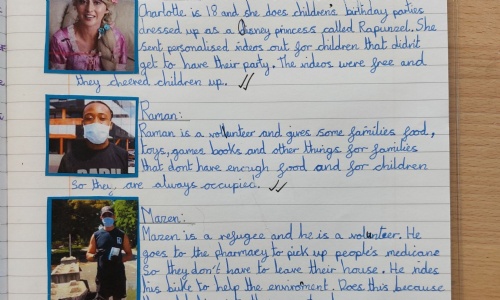 Charlotte is 18 and she does children's birthday parties
dressed up as a Disney princess called Rapunzel. She
sent personalised videos out for children that didn't
get to have their party. The videos were free and
they cheered children up.
Raman:
Raman is a volunteer and gives some families food,
toys, games books and other things for families
that dont have enough food and for children
So they are always occupied.
Mazen:
Mazen is a refugee and he is a volunteer. He
goes to the pharmacy to pick up people's medicane
So they don't have to leave their house. He rides
his bike to help the enviroment. Does this because